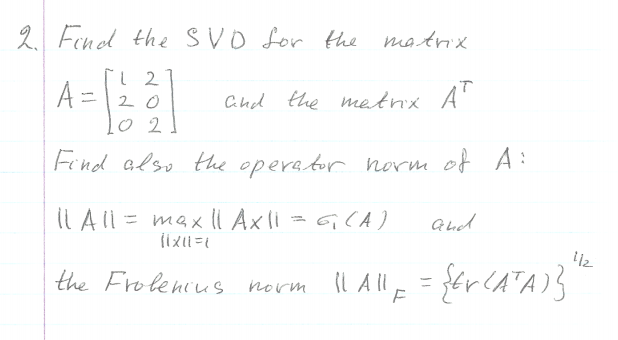 2. Find the SVD for the matrix
A = [1 2; 2 0; 0 2] and the matrix Aᵀ
Find also the operator norm of A:
||A|| = max ||Ax|| = σ₁(A) and
||x||=1
the Frobenius norm ||A||_F = {tr(AᵀA)}^1/2